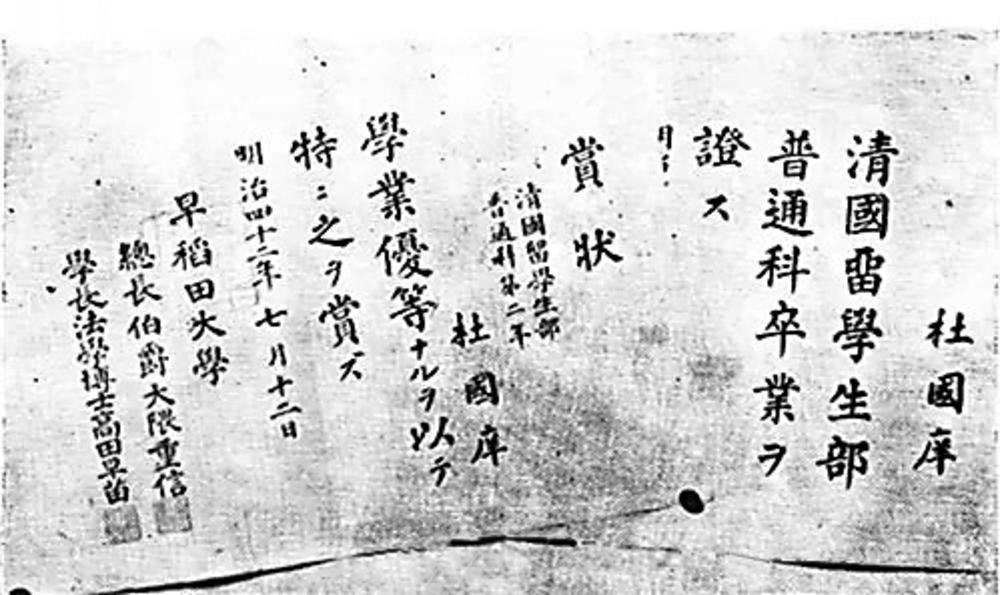 杜國庠
清國留學生部
普通科卒業ヲ
證ス
賞狀
清國留學生部
普通科第二年
杜國庠
學業優等ナルヲ以テ
特ニ之ヲ賞ス
明治四十二年七月十二日
早稻田大學
總長伯爵大隈重信
學長法學博士高田早苗